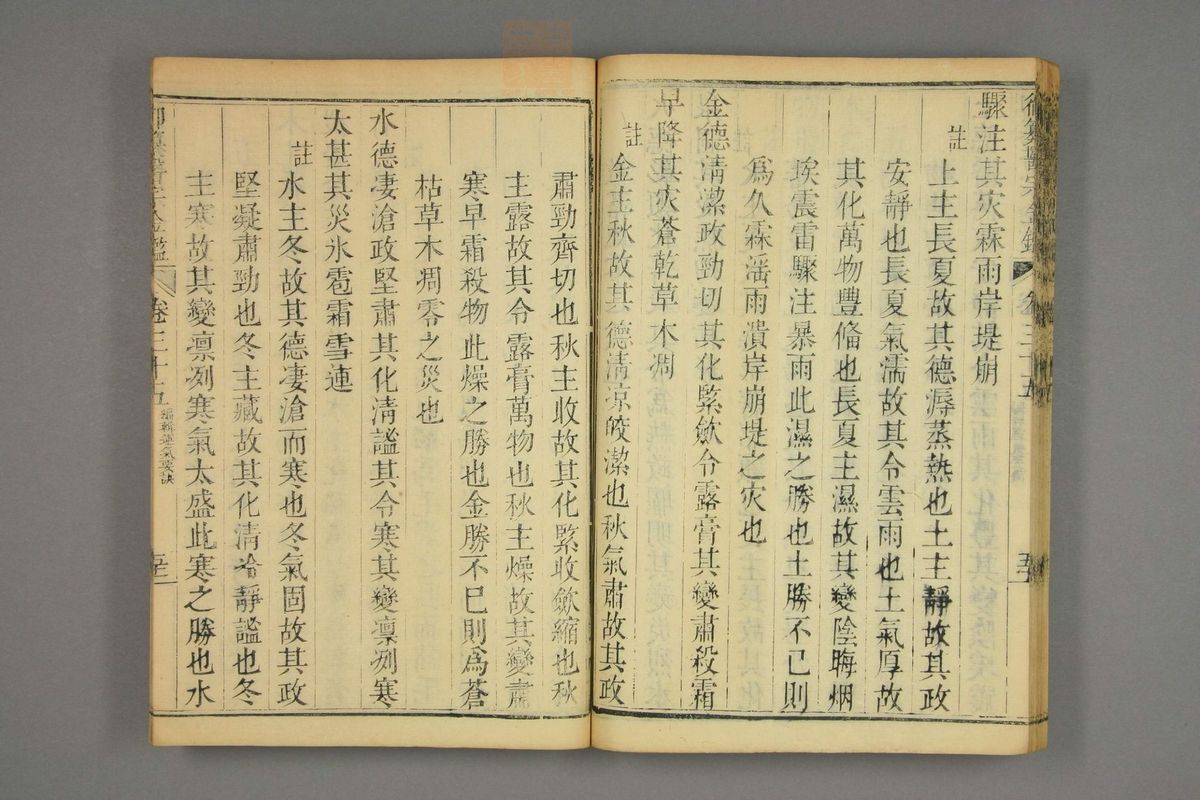 驟注其灾霖雨岸堤崩
註
土主長夏故其德溽蒸熱也土主靜故其政
安靜也長夏氣濡故其令雲雨也土氣厚故
其化萬物豐備也長夏主濕故其變陰晦烟
埃震雷驟注暴雨此濕之勝也土勝不已則
爲久霖滛雨潰岸崩堤之灾也
金德清潔政勁切其化緊歛令露膏其變肅殺霜
早降其灾蒼乾草木凋
註
金主秋故其德清凉皎潔也秋氣肅故其政
肅勁齊切也秋主收故其化緊收歛縮也秋
主露故其令露膏萬物也秋主燥故其變肅
寒早霜殺物此燥之勝也金勝不已則爲蒼
枯草木凋零之災也
水德凄滄政堅肅其化清謐其令寒其變凛冽寒
太甚其災氷雹霜雪連
註
水主冬故其德凄滄而寒也冬氣固故其政
堅凝肅勁也冬主藏故其化清冷靜謐也冬
主寒故其變凛冽寒氣太盛此寒之勝也水
御纂醫宗金鑑
卷三十五
編輯運氣要訣